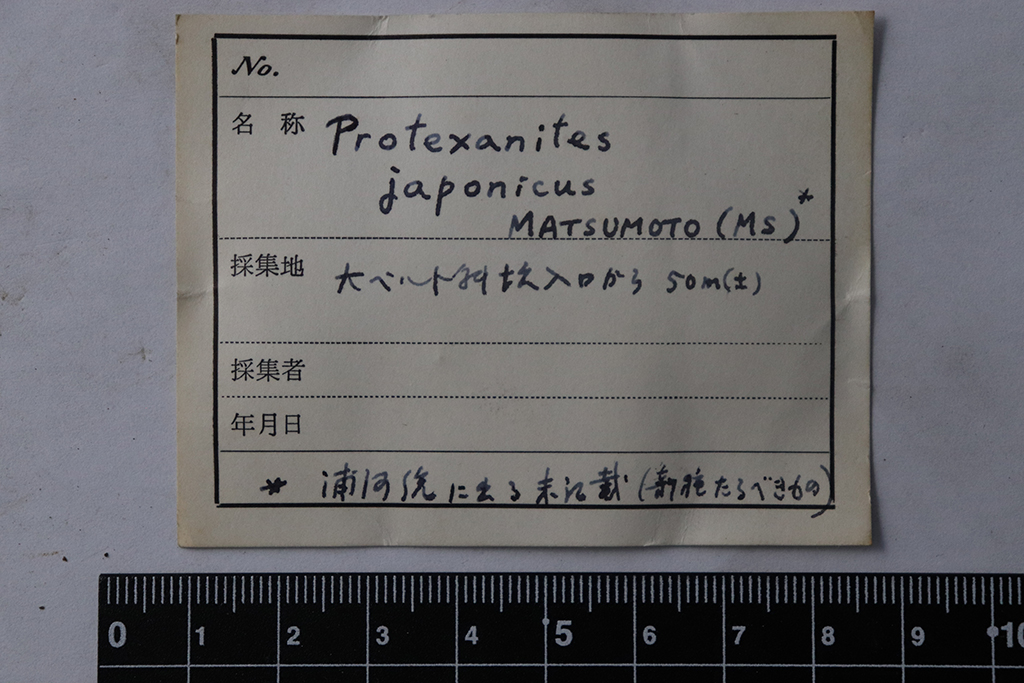 No.
名称 Protexanites
japonicus
MATSUMOTO (MS)*
採集地 大ベルト斜坑入口から 50m(±)
採集者
年月日
* 浦河統に出る未記載(新種たるべきもの)
0 1 2 3 4 5 6 7 8 9 10